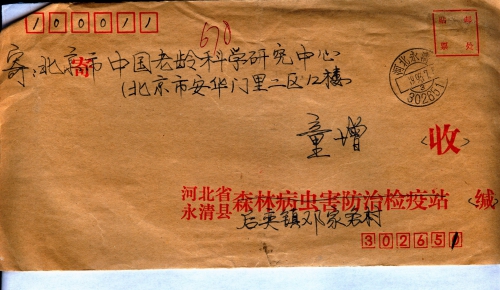 100011
寄:北京市中国老龄科学研究中心
寄
(北京市安华门里二区12楼)
河北永清
302651
童增 收
河北省永清县 森林病虫害防治检疫站 缄
后奕镇邓家务村
30265